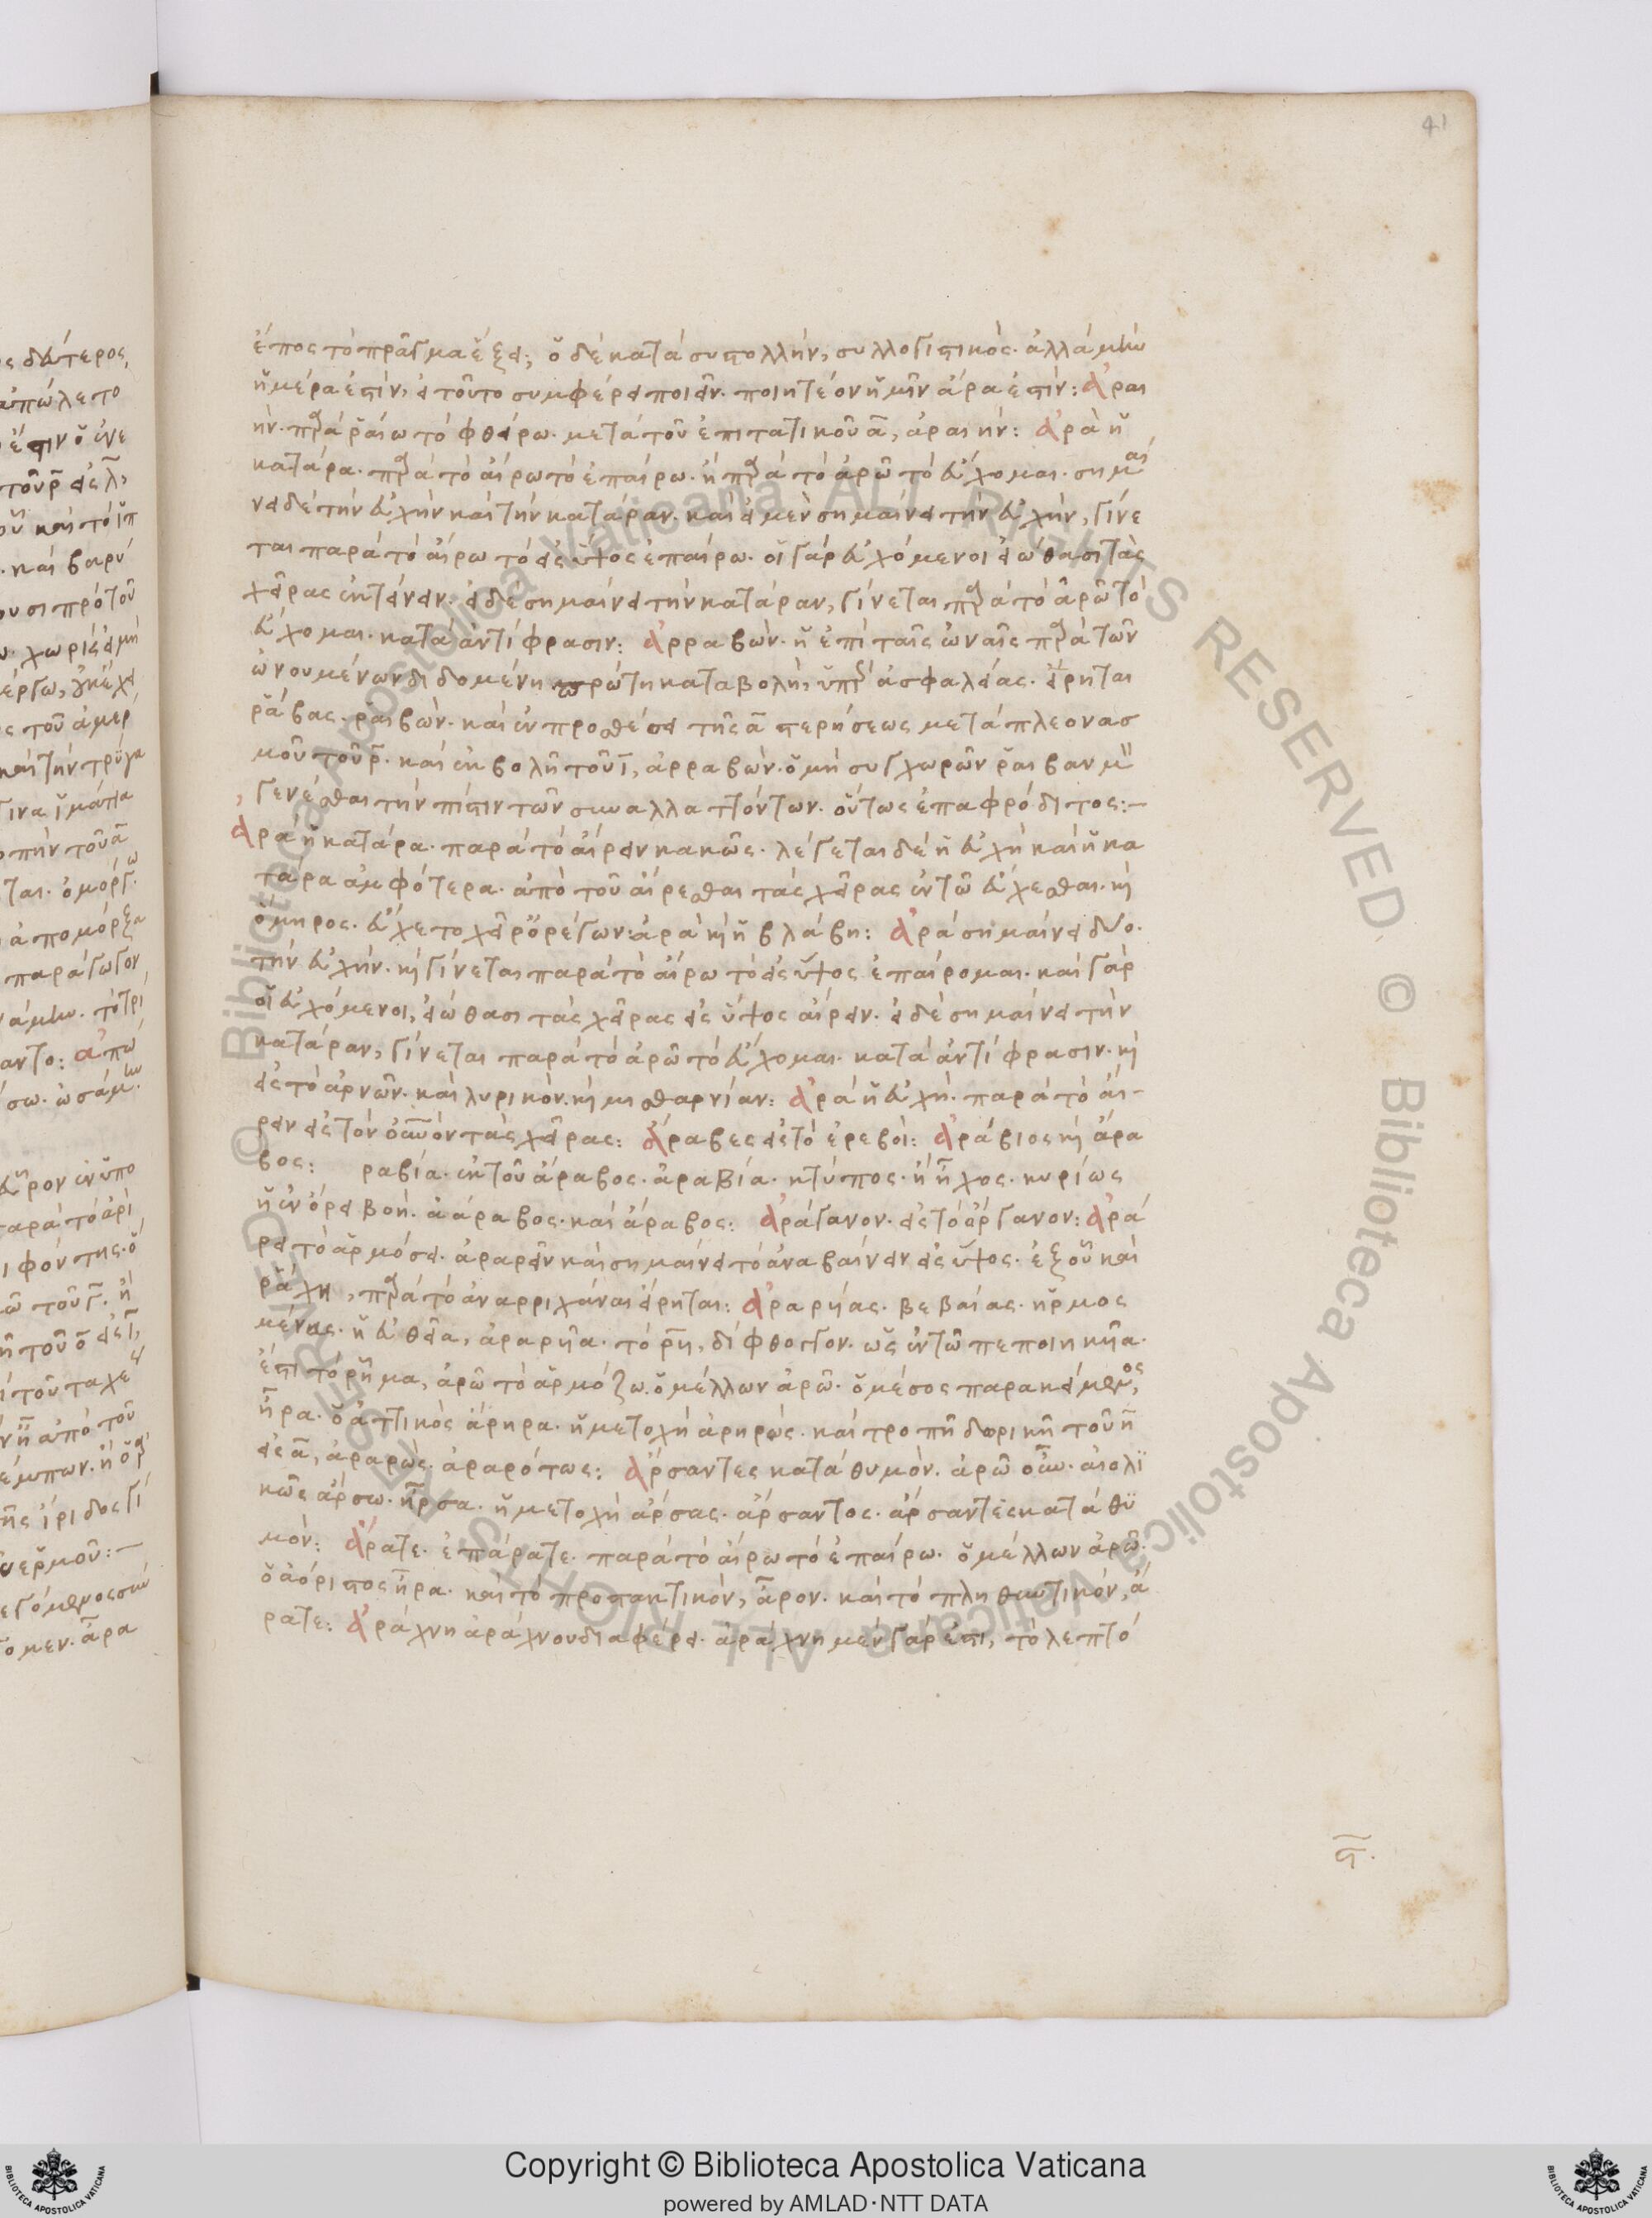 41
ἔπος τὸ πρᾶγμα ἕξει; ὁ δὲ κατὰ συστολλὴν, συλλογιστικὸς. ἀλλὰ μὴν
ἡμέρα ἐστὶν, εἰ τοῦτο συμφέρει ποιεῖν. ποιητέον ἡμῖν ἄρα ἐστίν: ἀραι
ὴν. παρὰ ῥαίω τὸ φθείρω. μετὰ τοῦ ἐπιτατικοῦ α, ἀραιήν: ἀρὰ ἡ
κατάρα. παρὰ τὸ αἴρω τὸ ἐπαίρω. ἢ παρὰ τὸ ἀρῶ τὸ εὔχομαι. σημαί
νει δὲ τὴν εὐχὴν καὶ τὴν κατάραν. καὶ εἰ μὲν σημαίνει τὴν εὐχὴν, γίνε
ται παρὰ τὸ αἴρω τὸ εἰς ὕψος ἐπαίρω. οἱ γὰρ εὐχόμενοι εἰώθασι τὰς
χεῖρας ἐκτείνειν. εἰ δὲ σημαίνει τὴν κατάραν, γίνεται παρὰ τὸ ἀρῶ τὸ
εὔχομαι. κατὰ ἀντίφρασιν: ἀρραβὼν. ἡ ἐπὶ ταῖς ὠναῖς παρὰ τῶν
ὠνουμένων διδομένη πρώτη καταβολὴ, ὑπὲρ ἀσφαλείας. εἴρηται
ῥάβας. ῥαιβὼν. καὶ ἐν προσθέσει τῆς α στερήσεως μετὰ πλεονασ
μοῦ τοῦ ρ. καὶ ἐκβολῇ τοῦ ι, ἀρραβὼν. ὁ μὴ συγχωρῶν ῥαιβὰν
γενέσθαι τὴν πίστιν τῶν συναλλαττόντων. οὕτως ἐπαφρόδιτος:—
ἀρὰ ἡ κατάρα. παρὰ τὸ αἴρειν κακῶς. λέγεται δὲ ἡ εὐχὴ καὶ ἡ κα
τάρα ἀμφότερα. ἀπὸ τοῦ αἴρεσθαι τὰς χεῖρας ἐν τῷ εὔχεσθαι. καὶ
ὅμηρος. εὔχετο χεῖρ' ὀρέγων: ἀρὰ καὶ ἡ βλάβη: ἀρὰ σημαίνει δύο.
τὴν εὐχὴν. καὶ γίνεται παρὰ τὸ αἴρω τὸ εἰς ὕψος ἐπαίρομαι. καὶ γὰρ
οἱ εὐχόμενοι, εἰώθασι τὰς χεῖρας εἰς ὕψος αἴρειν. εἰ δὲ σημαίνει τὴν
κατάραν, γίνεται παρὰ τὸ ἀρῶ τὸ εὔχομαι. κατὰ ἀντίφρασιν. καὶ
εἰς τὸ ἀρνῶν. καὶ λυρικὸν. καὶ μισθαρνίαν: ἀρὰ ἡ εὐχὴ. παρὰ τὸ αἴ-
ρειν εἰς τὸν οὐρανὸν τὰς χεῖρας: ἄραβες εἰς τὸ ἐρεβοὶ: ἀράβιος καὶ ἄρα
βος: ραβία. ἐκ τοῦ ἄραβος. ἀραβία. κτύπος. ἢ ἦχος. κυρίως
ἡ ἐν ὄρει βοὴ. ἀάραβος. καὶ ἄραβος: ἀράγανον. εἰς τὸ ὄργανον: ἀρά
ρει τὸ ἁρμόσει. ἀραρεῖν καὶ σημαίνει τὸ ἀναβαίνειν εἰς ὕψος. ἐξ οὗ καὶ
ῥάχη, παρὰ τὸ ἀναρριχάναι εἴρηται: ἀραρήας. βεβαίας. ἡρμος
μένας. ἡ εὐθεῖα, ἀραρῆα. τὸ ρη, δίφθογγον. ὡς ἐν τῷ πεποιηκῆα.
ἔστι τὸ ῥῆμα, ἀρῶ τὸ ἁρμόζω. ὁ μέλλων ἀρῶ. ὁ μέσος παρακείμενος,
ἦρα. ὁ ἀττικὸς ἄρηρα. ἡ μετοχὴ ἀρηρὼς. καὶ τροπῇ δωρικῇ τοῦ η
εἰς α, ἀραρὼς. ἀραρότως: ἄρσαντες κατὰ θυμὸν. ἀρῶ αἰολι
κῶς ἄρσω. ἦρσα. ἡ μετοχὴ ἄρσας. ἄρσαντος. ἄρσαντες κατὰ θυ
μὸν: ἄρατε. ἐπάρατε. παρὰ τὸ αἴρω τὸ ἐπαίρω. ὁ μέλλων ἀρῶ.
ὁ ἀόριστος ἦρα. καὶ τὸ προστακτικὸν, ἆρον. καὶ τὸ πληθυντικὸν, ἄ
ρατε: ἀράχνη ἀράχνου διαφέρει. ἀράχνη μὲν γάρ ἐστι, τὸ λεπτὸ
Copyright © Biblioteca Apostolica Vaticana
powered by AMLAD·NTT DATA